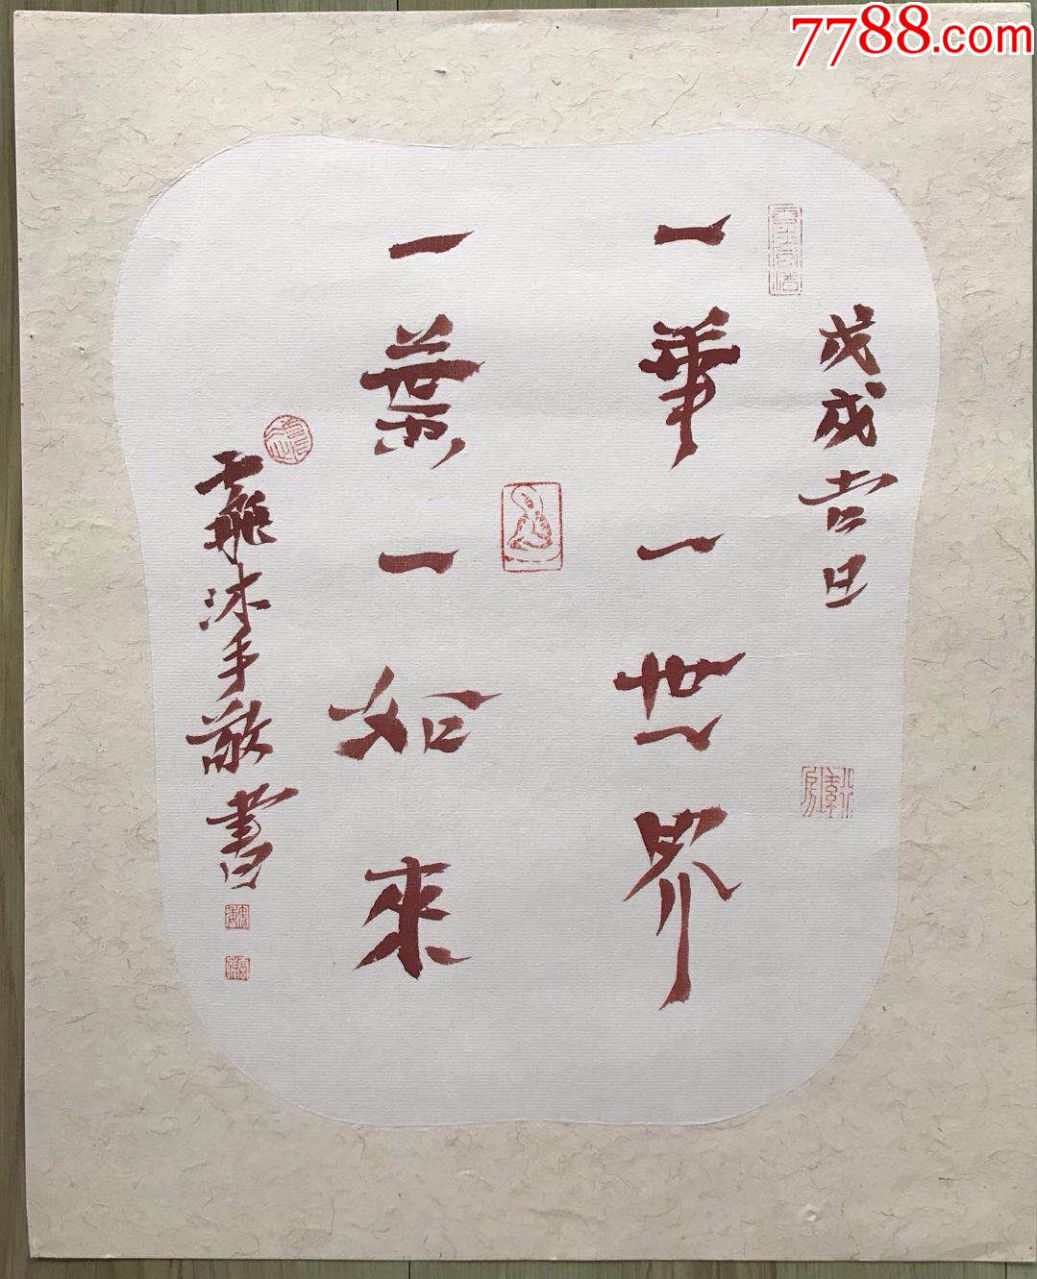 7788.com
戊戌吉旦
一華一世界
一葉一如來
沐手敬書